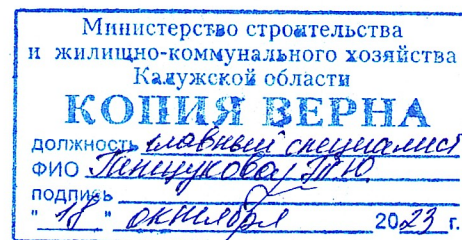 Министерство строительства
и жилищно-коммунального хозяйства
Калужской области
КОПИЯ ВЕРНА
должность главный специалист
ФИО Т.Ю.
подпись
"18" октября 2023 г.